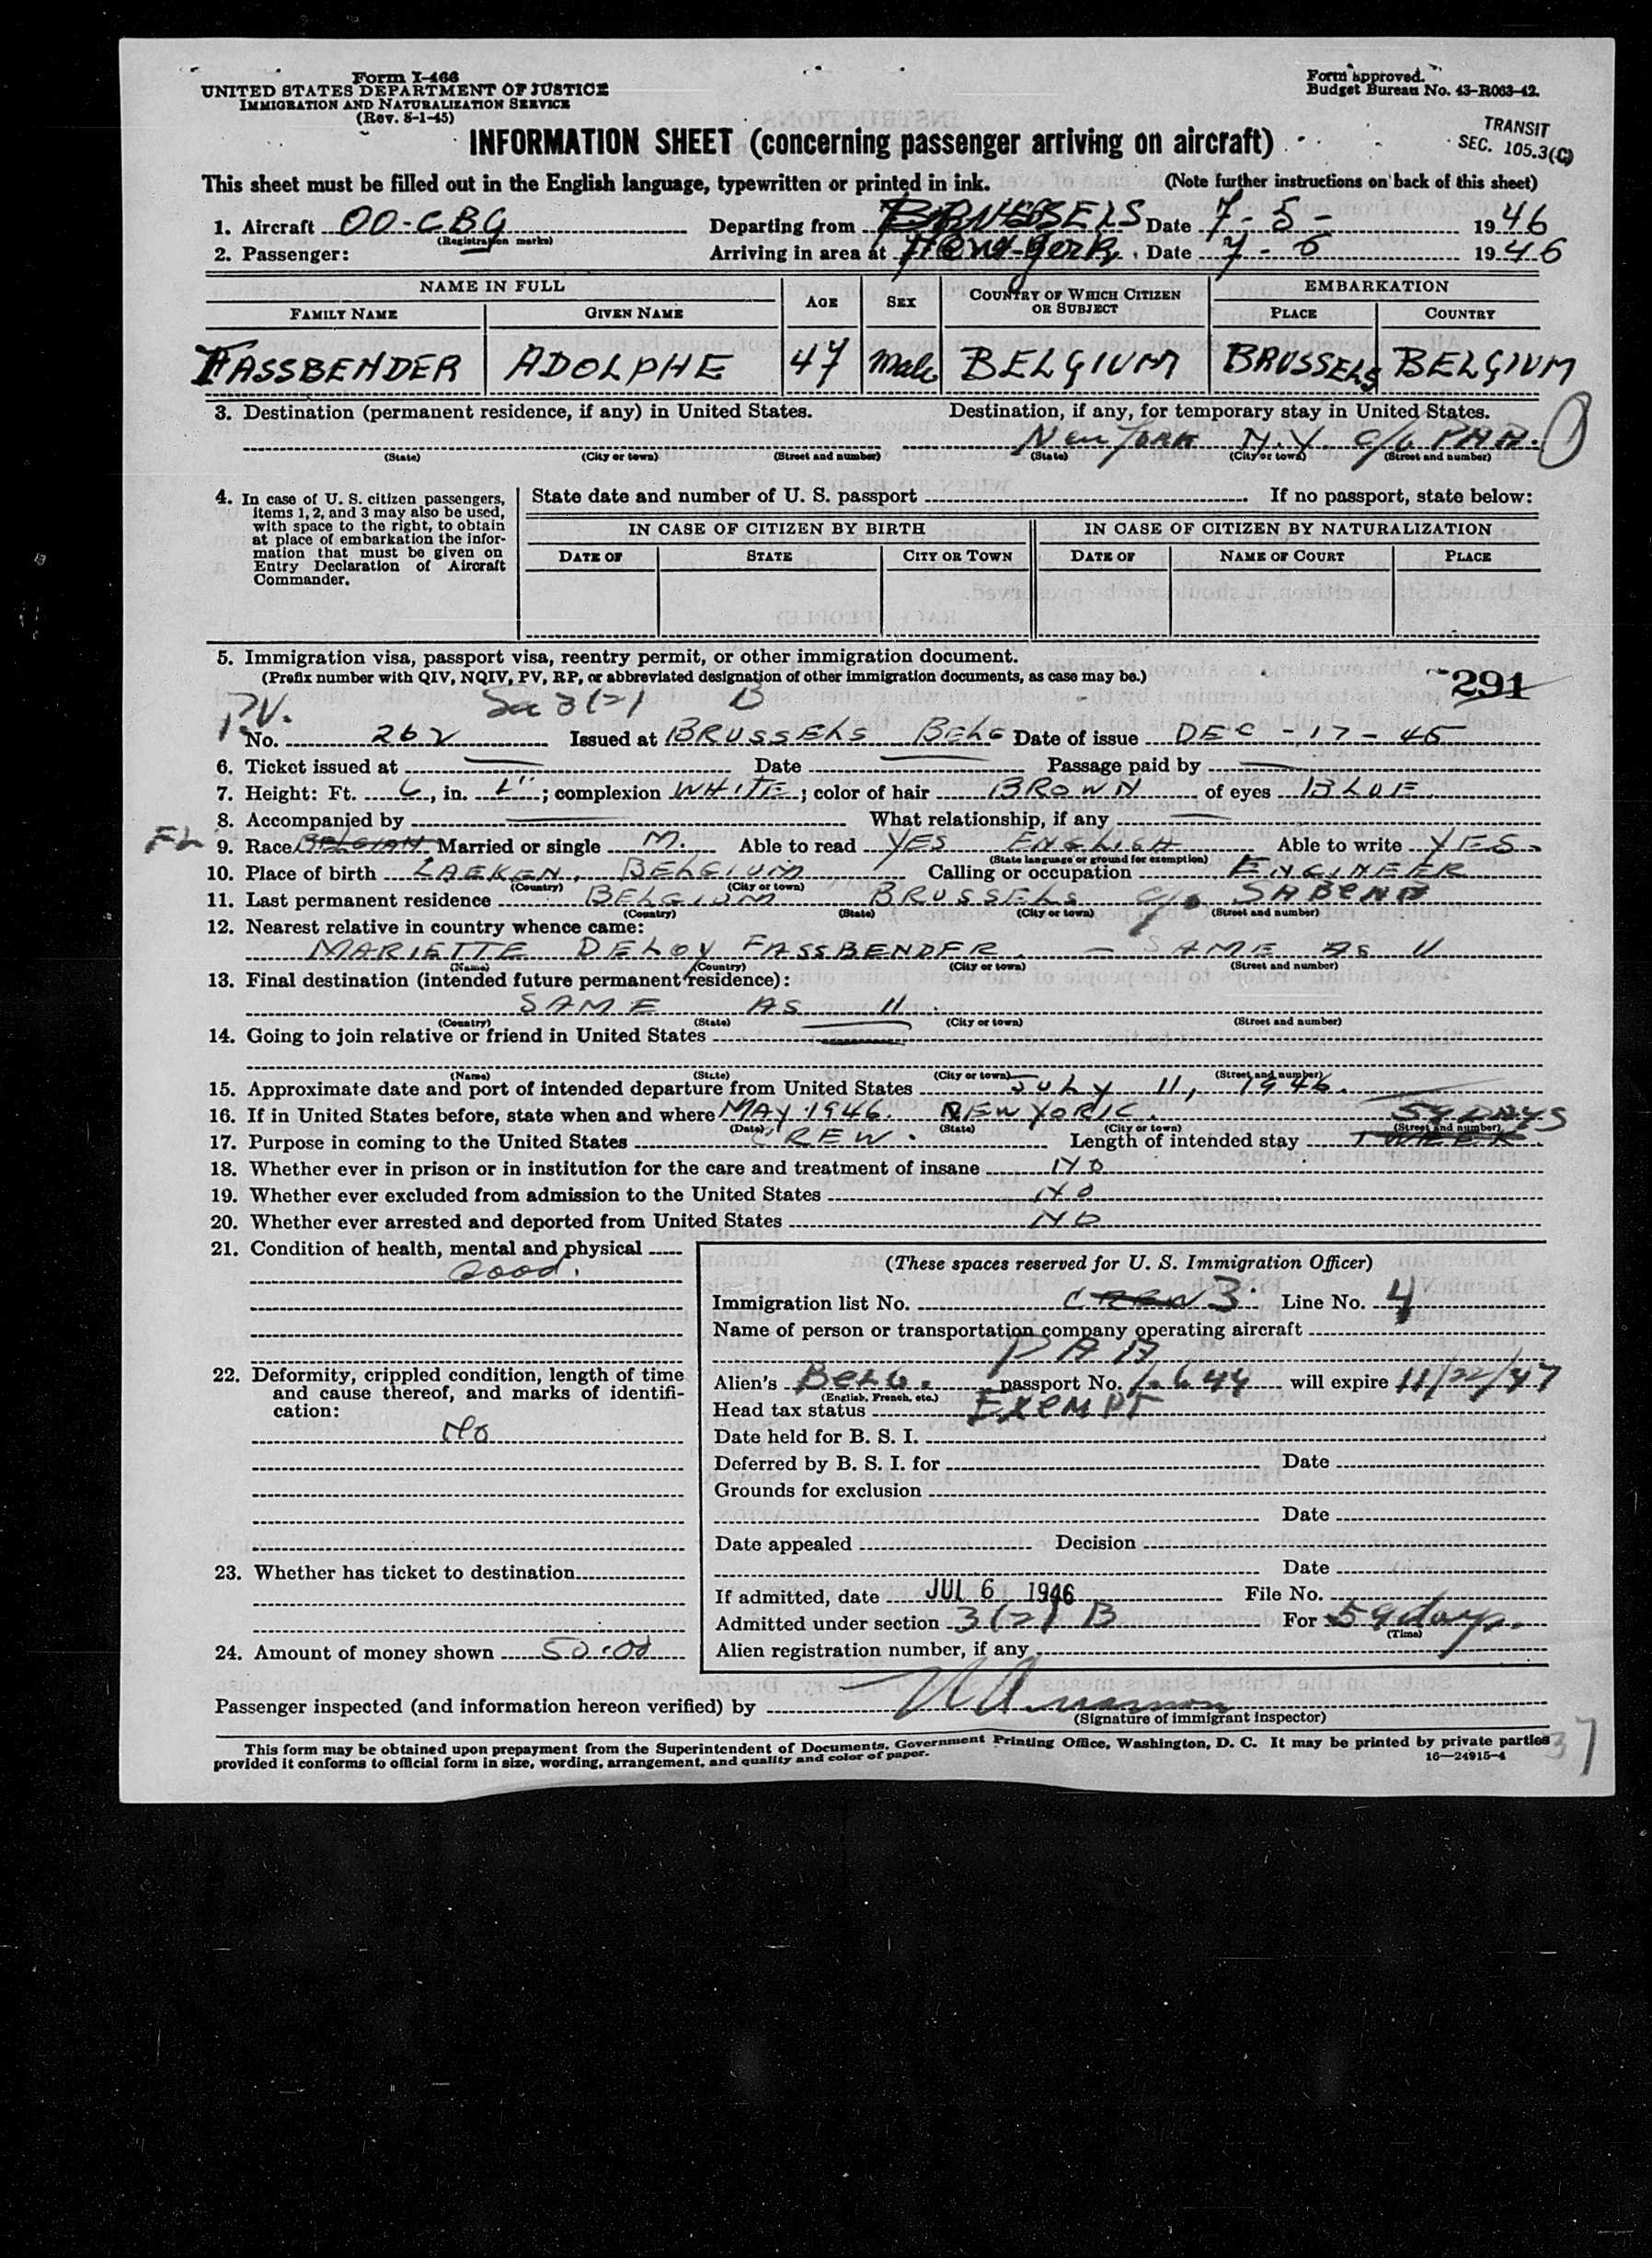 Form I-466
UNITED STATES DEPARTMENT OF JUSTICE
IMMIGRATION AND NATURALIZATION SERVICE
(Rev. 8-1-45)
Form approved.
Budget Bureau No. 43-R063-42.
TRANSIT
SEC. 105.3(C)
INFORMATION SHEET (concerning passenger arriving on aircraft)
This sheet must be filled out in the English language, typewritten or printed in ink. (Note further instructions on back of this sheet)
1. Aircraft OO-CBG Departing from BRUSSELS Date 7-5- 1946
(Registration marks)
2. Passenger: Arriving in area at New-York Date 7-6 1946
NAME IN FULL AGE SEX COUNTRY OF WHICH CITIZEN OR SUBJECT EMBARKATION
FAMILY NAME GIVEN NAME PLACE COUNTRY
FASSBENDER ADOLPHE 47 Male BELGIUM BRUSSELS BELGIUM
3. Destination (permanent residence, if any) in United States. Destination, if any, for temporary stay in United States.
New York N.Y. c/o PAA.
(State) (City or town) (Street and number) (State) (City or town) (Street and number)
4. In case of U. S. citizen passengers, items 1, 2, and 3 may also be used, with space to the right, to obtain at place of embarkation the information that must be given on Entry Declaration of Aircraft Commander.
State date and number of U. S. passport If no passport, state below:
IN CASE OF CITIZEN BY BIRTH IN CASE OF CITIZEN BY NATURALIZATION
DATE OF STATE CITY OR TOWN DATE OF NAME OF COURT PLACE
5. Immigration visa, passport visa, reentry permit, or other immigration document.
(Prefix number with QIV, NQIV, PV, RP, or abbreviated designation of other immigration documents, as case may be.)
291
P.V. Sec 3(2) B
No. 262 Issued at BRUSSELS BELG Date of issue DEC - 17 - 45
6. Ticket issued at Date Passage paid by
7. Height: Ft. 6, in. ; complexion WHITE; color of hair BROWN of eyes BLUE
8. Accompanied by What relationship, if any
FL 9. Race BELGIAN Married or single M. Able to read YES ENGLISH Able to write YES
(State language or ground for exemption)
10. Place of birth LAEKEN, BELGIUM Calling or occupation ENGINEER
(Country) (City or town)
11. Last permanent residence BELGIUM BRUSSELS c/o SABENA
(Country) (State) (City or town) (Street and number)
12. Nearest relative in country whence came:
MARIETTE DELOY FASSBENDER. - SAME AS 11
(Name) (Country) (City or town) (Street and number)
13. Final destination (intended future permanent residence):
SAME AS 11.
(Country) (State) (City or town) (Street and number)
14. Going to join relative or friend in United States
(Name) (State) (City or town) (Street and number)
15. Approximate date and port of intended departure from United States JULY 11, 1946.
16. If in United States before, state when and where MAY 1946. NEW YORK.
(Date) (State) (City or town) (Street and number)
17. Purpose in coming to the United States CREW. Length of intended stay 1 WEEK 59 DAYS
18. Whether ever in prison or in institution for the care and treatment of insane NO
19. Whether ever excluded from admission to the United States NO
20. Whether ever arrested and deported from United States NO
21. Condition of health, mental and physical
Good.
(These spaces reserved for U. S. Immigration Officer)
Immigration list No. CREW 3 Line No. 4
Name of person or transportation company operating aircraft
PAA
22. Deformity, crippled condition, length of time and cause thereof, and marks of identification:
No
Alien's BELG. passport No. 1.644 will expire 11/22/47
(English, French, etc.)
Head tax status EXEMPT
Date held for B. S. I.
Deferred by B. S. I. for Date
Grounds for exclusion
Date
Date appealed Decision
Date
23. Whether has ticket to destination
If admitted, date JUL 6 1946 File No.
Admitted under section 3(2) B For 59 days.
(Time)
24. Amount of money shown 50.00
Alien registration number, if any
Passenger inspected (and information hereon verified) by
(Signature of immigrant inspector)
This form may be obtained upon prepayment from the Superintendent of Documents, Government Printing Office, Washington, D. C. It may be printed by private parties
provided it conforms to official form in size, wording, arrangement, and quality and color of paper.
16—24915-4
37